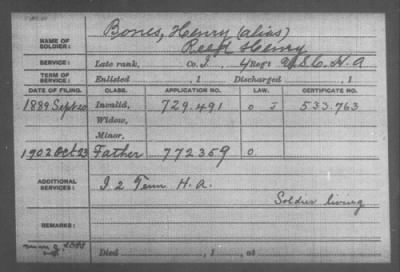 NAME OF SOLDIER: Bones, Henry (alias)
Reed Henry
SERVICE: Late rank, Co. I, 4 Reg't U.S.C.H.A
TERM OF SERVICE: Enlisted , 1 Discharged , 1
DATE OF FILING. CLASS. APPLICATION NO. LAW. CERTIFICATE NO.
1889 Sept 20 Invalid, 729.491 0 J 533.763
Widow,
Minor,
1902 Oct 23 Father 772359 0
ADDITIONAL SERVICES: I 2 Tenn H.A.
Soldier living
REMARKS:
Died , 1 , at